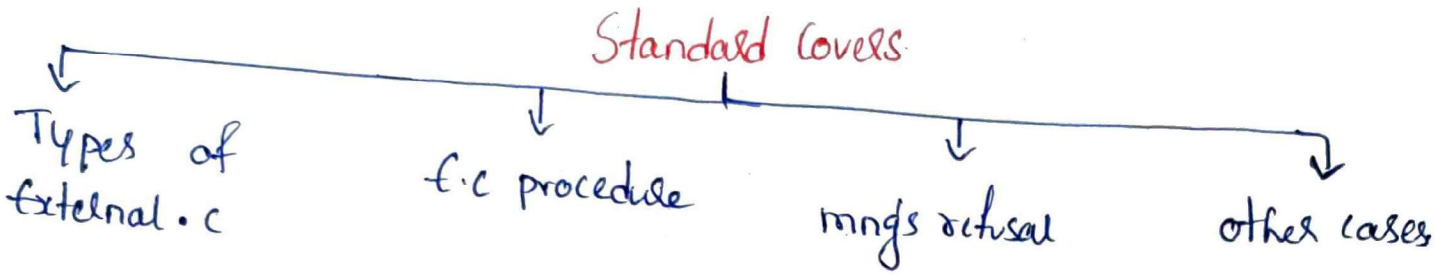 Standard Covers
Types of
External . c
E.C procedure
mng's refusal
other cases